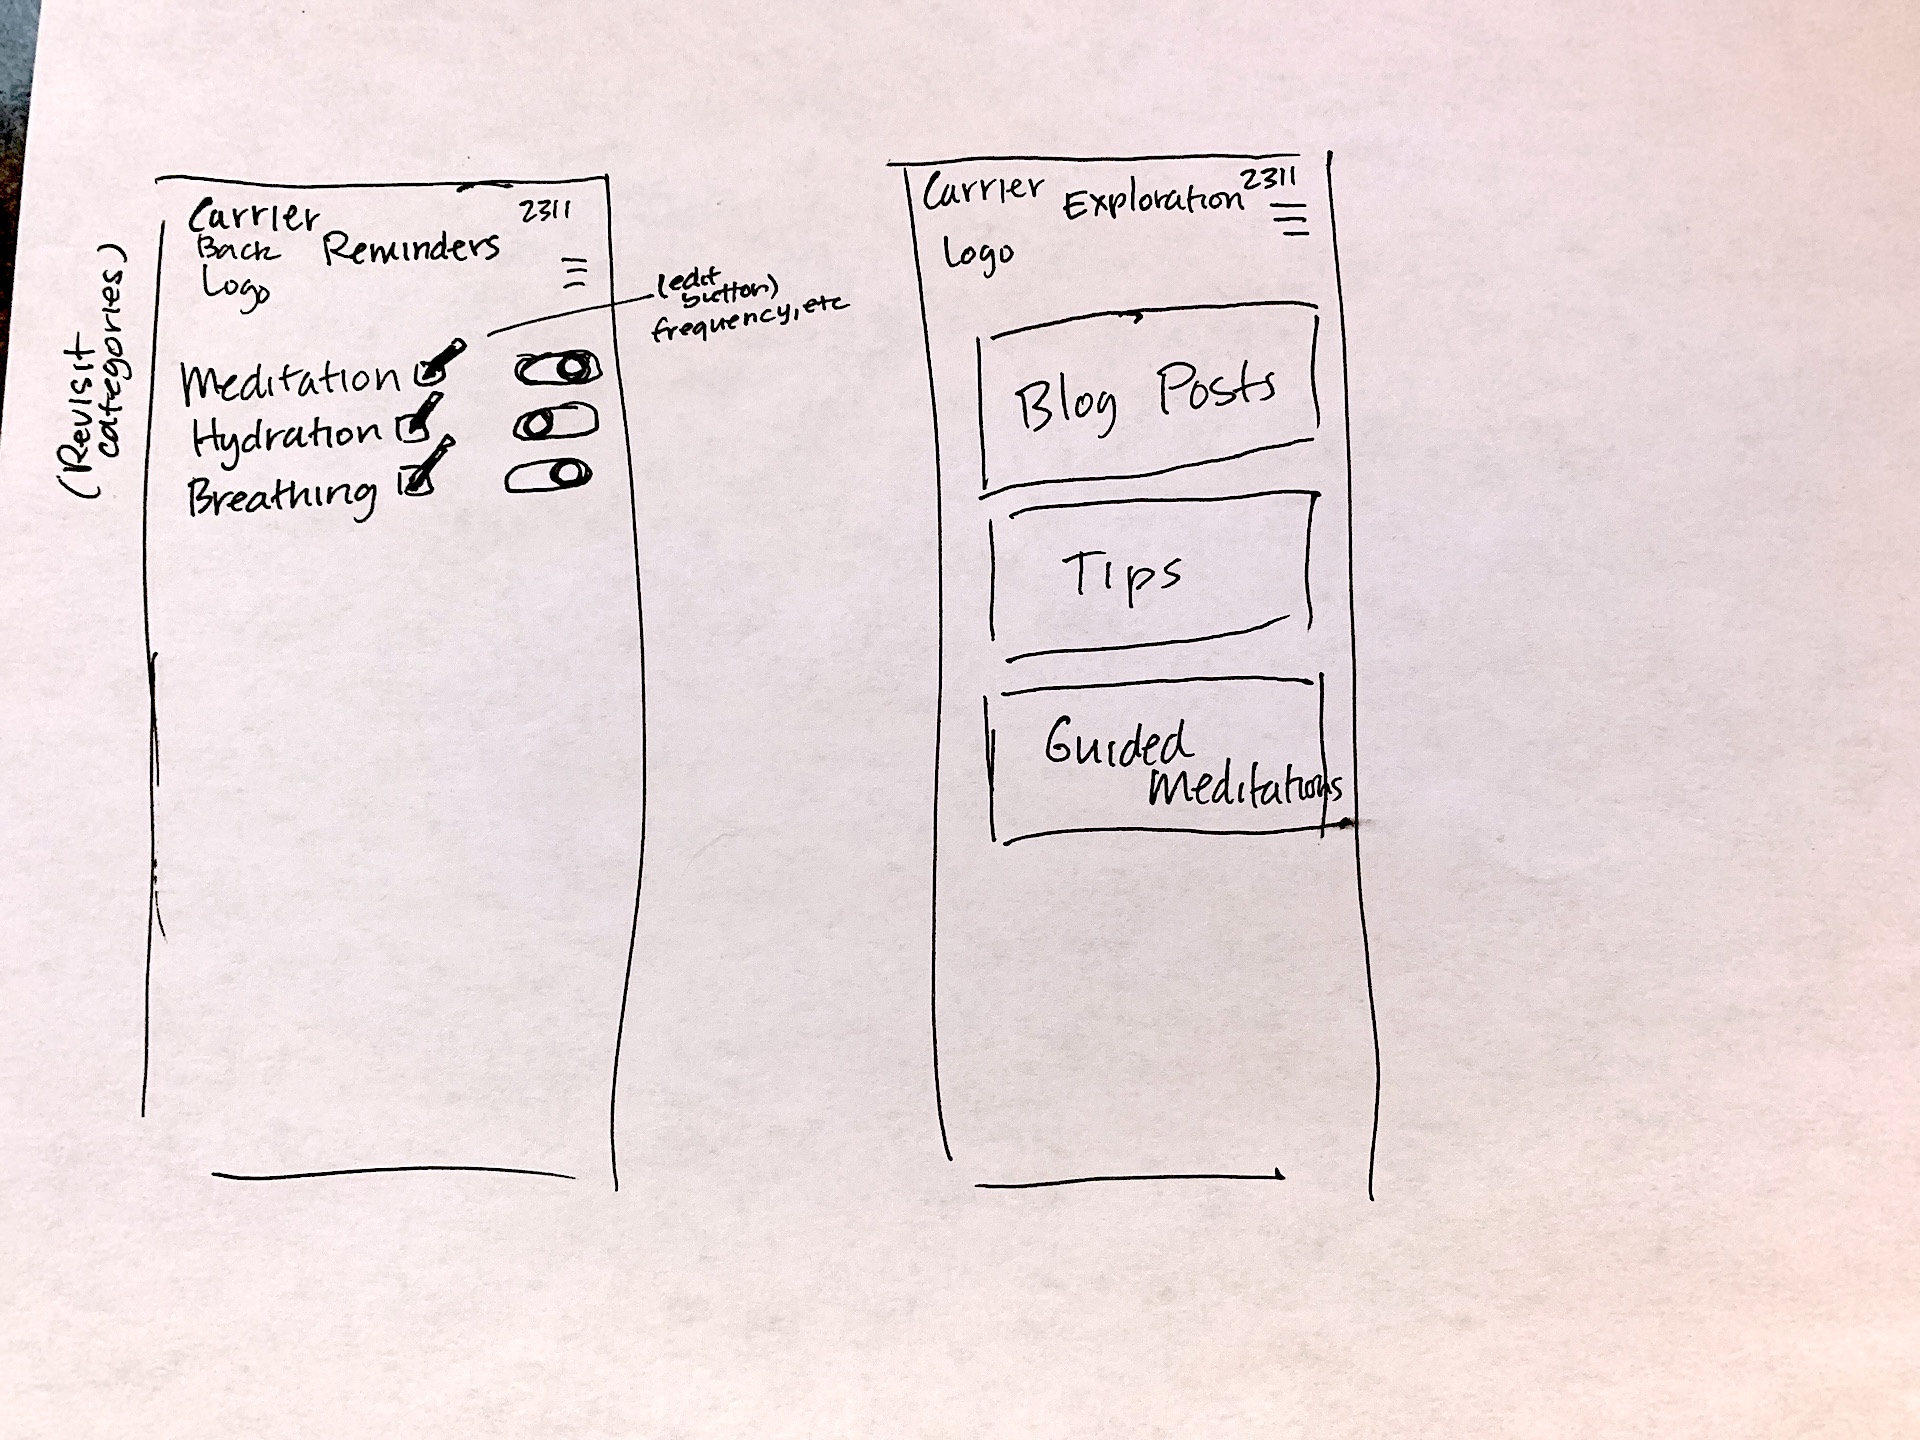 (Revisit
categories)
Carrier 2311
Back Reminders
Logo
(edit
button)
frequency, etc
Meditation
Hydration
Breathing
Carrier Exploration 2311
Logo
Blog Posts
Tips
Guided
Meditations